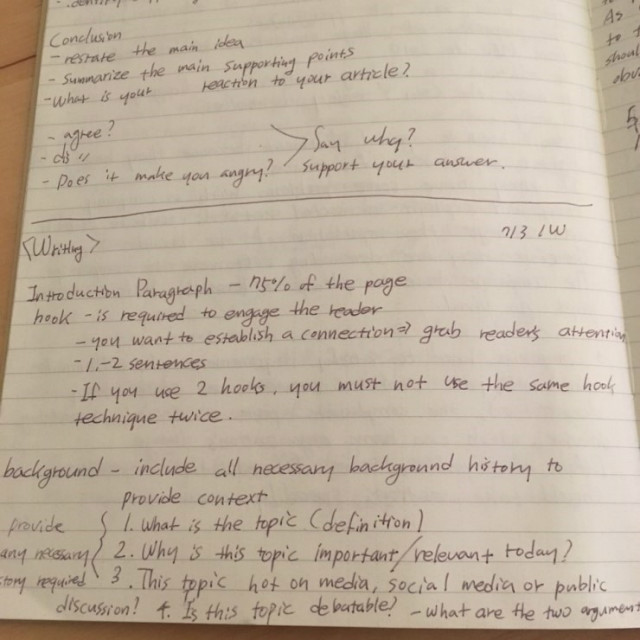 Conclusion
- restate the main idea
- summarize the main supporting points
- What is your reaction to your article?
- agree?
- dis "
- Does it make you angry?
Say why?
support your answer.
<Writing>
7/3 / W
Introduction Paragraph - 75% of the page
hook - is required to engage the reader
- you want to establish a connection ⇒ grab reader's attention
- 1.-2 sentences
- If you use 2 hooks, you must not use the same hook
technique twice.
background - include all necessary background history to
provide context
provide
any necessary
story required
1. What is the topic (definition)
2. Why is this topic important/relevant today?
3. This topic hot on media, social media or public
discussion? 4. Is this topic debatable? - what are the two argument
As
to t
shoul
obv